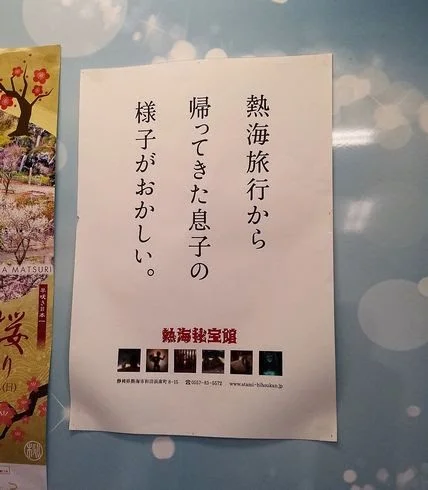 熱海旅行から
帰ってきた息子の
様子がおかしい。
熱海秘宝館
静岡県熱海市和田浜南町8-15 ☎0557-83-5572 www.atami-hihoukan.jp
A MATSURI
早咲き日本一
桜
り